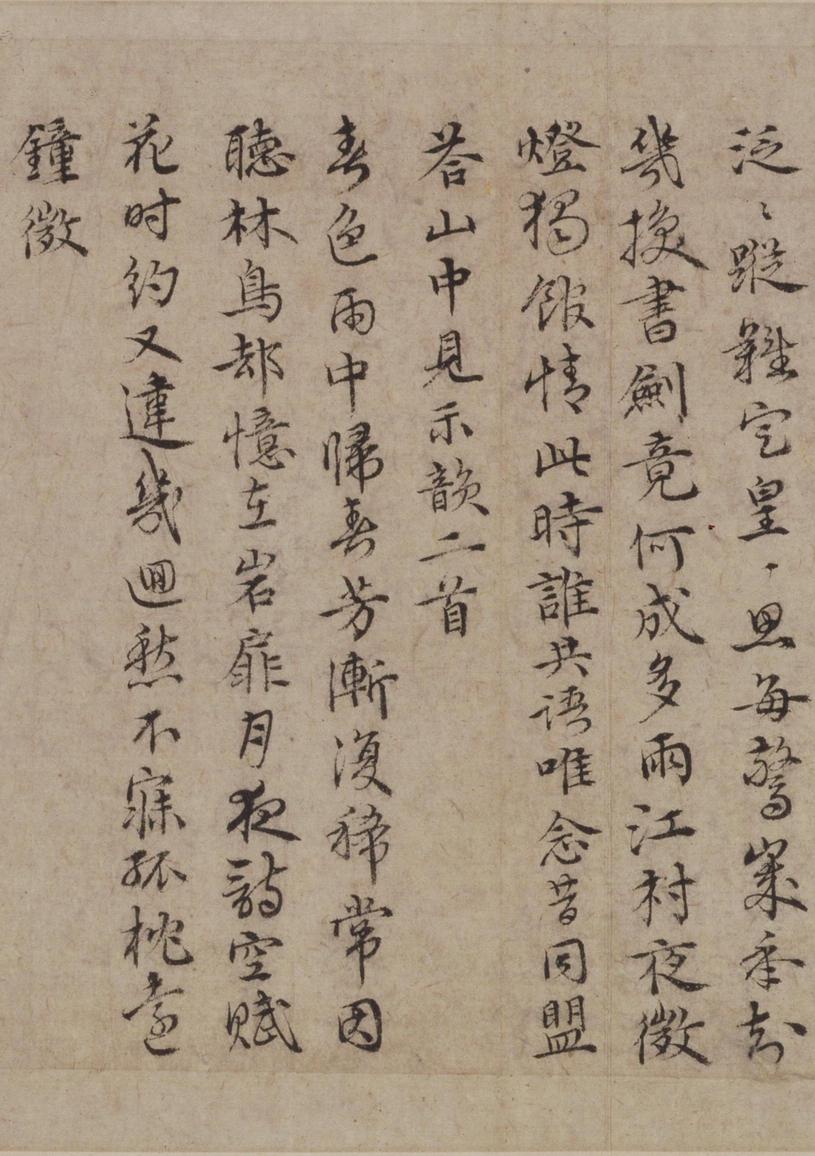 泛〻蹤難定皇〻思每驚歲年知
幾換書劍竟何成多雨江村夜微
燈獨館情此時誰共語唯念昔同盟
荅山中見示韻二首
春色雨中歸春芳漸復稀常因
聽林鳥却憶在岩扉月夜詩空賦
花时約又違幾迴愁不寐孤枕遠
鐘微